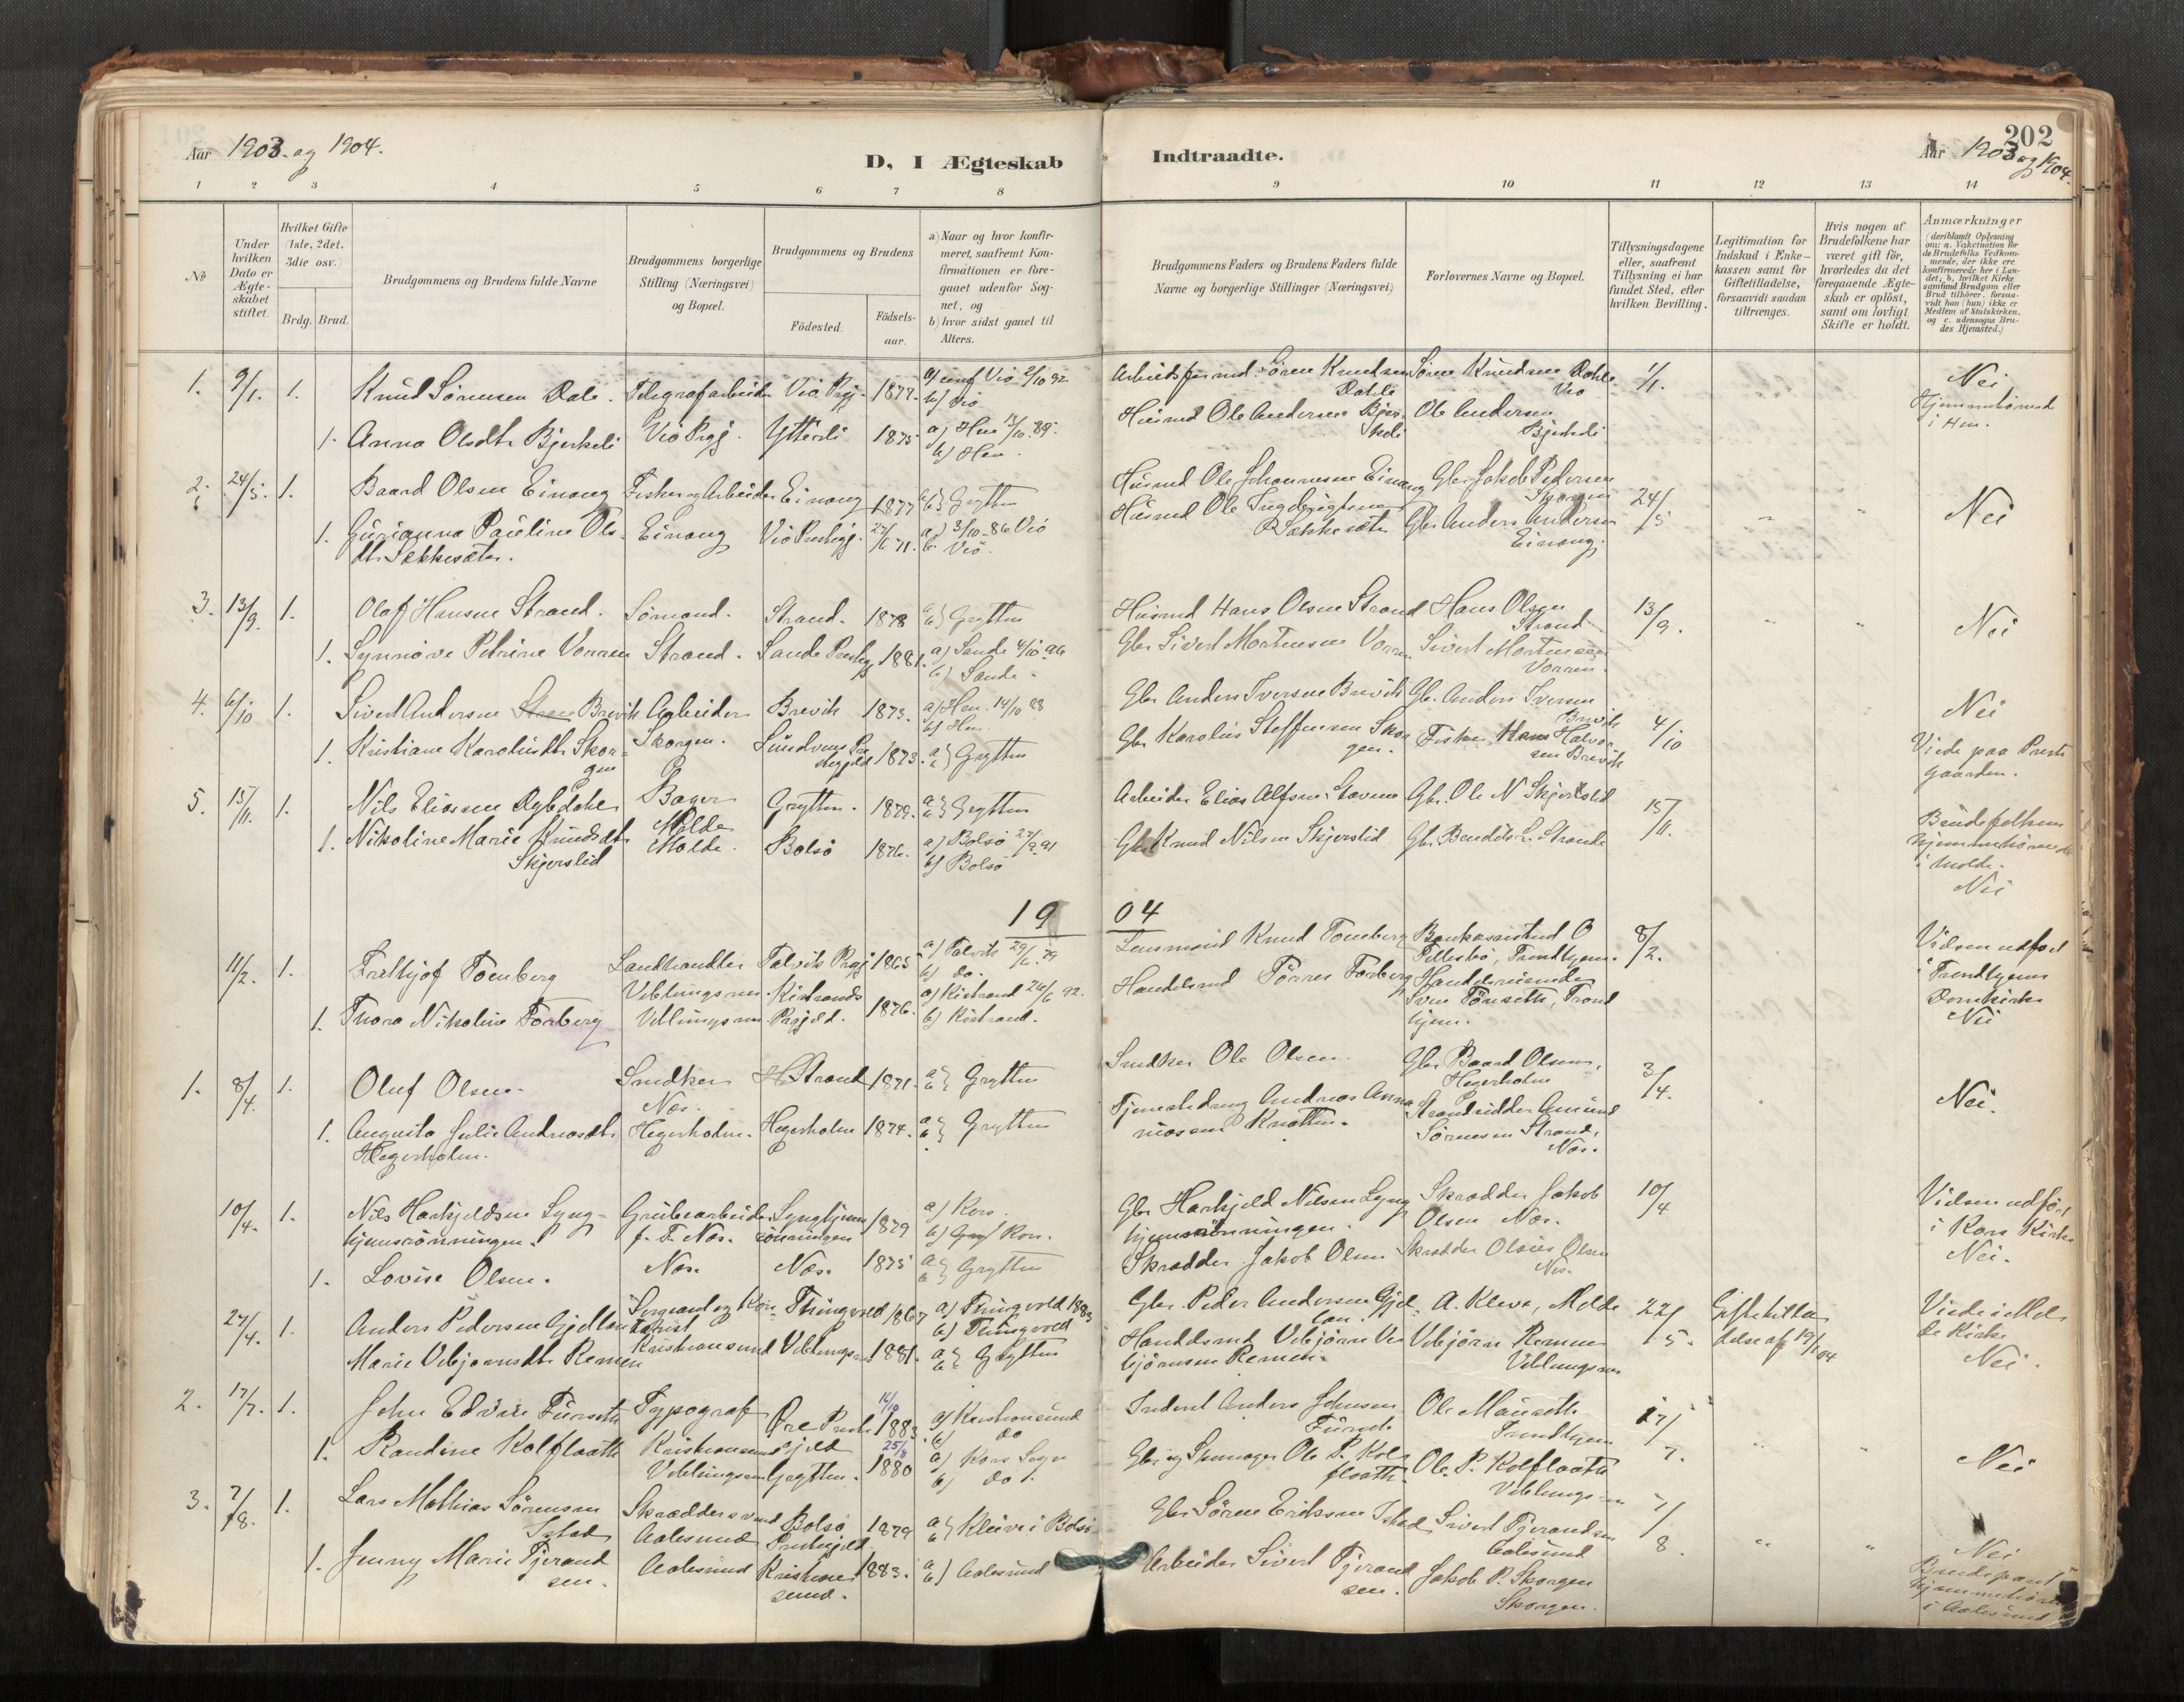 202
Aar 1903 og 1904.
D, I Ægteskab
Indtraadte.
Aar 1903 og 1904.
1 2 3 4 5 6 7 8 9 10 11 12 13 14
No
Under hvilken Dato er Ægteskabet stiftet.
Hvilket Gifte (1ste, 2det, 3die osv.)
Brdg. Brud.
Brudgommens og Brudens fulde Navne
Brudgommens borgerlige Stilling (Næringsvei) og Bopæl.
Brudgommens og Brudens
Födested.
Födselsaar.
a) Naar og hvor konfirmeret, saafremt Konfirmationen er foregaaet udenfor Sognet, og
b) hvor sidst gaaet til Alters.
Brudgommens Faders og Brudens Faders fulde Navne og borgerlige Stillinger (Næringsvei)
Forlovernes Navne og Bopæl.
Tillysningsdagene eller, saafremt Tillysning ei har fundet Sted, efter hvilken Bevilling.
Legitimation for Indskud i Enkekassen samt for Giftetilladelse, forsaavidt saadan tiltrænges.
Hvis nogen af Brudefolkene har været gift för, hvorledes da det foregaaende Ægteskab er oplöst, samt om lovligt Skifte er holdt.
Anmærkninger (deriblandt Oplysning om: a. Vakcination for de Brudefolks Vedkommende, der ikke ere konfirmerede her i Landet; b. hvilket Kirkesamfund Brudgom eller Brud tilhörer, forsaavidt han (hun) ikke er Medlem af Statskirken, og c. udensogns Brudes Hjemsted.)
1. 9/1. 1. Knud Sörensen Dale. Telegrafarbeider Viö Prgj. 1877. a) conf Viö 2/10 92 b) Viö Arbeidsformd. Sören Knudsen Dahle Sören Knudsen Dahle Viö 1/1. Nei
1. Anna Olsdtr Bjerkeli Viö Prgj. Ytterli 1875 a) Hen 13/10. 89. b) Hen. Husmd Ole Andersen Bjerkeli Ole Andersen Bjerkeli Hjemmehörende i Hen.
2. 24/5. 1. Baard Olsen Einang Fisker og Arbeider Einang 1877 a b} Grytten Husmd Ole Johannesen Einang Gbr Jakob Pedersen Skorgen 24/5 Nei
1. Gurianna Pauline Olsdtr Sekkesæter. Einang Viö Prestegj. 27/6 71. a) 3/10-86 Viö b. Viö. Husmd Ole Sekkesæter Gbr Anders Andersen Einang.
3. 13/9. 1. Olaf Hansen Strand. Sömand. Strand. 1878 a b} Grytten Husmd Hans Olsen Strand Hans Olsen Strand 13/9. Nei
1. Synnöve Petrine Vorren Strand. Sande Prestegj 1881. a) Sande 4/10 96 b) Sande. Gbr Sivert Mortensen Vorren Sivert Mortensen Vorren.
4. 4/10 1. Sivert Andersen Brevik Arbeider Brevik 1873. a) Hen. 14/10 88 b) Hen. Gbr Anders Iversen Brevik Gbr. Anders Iversen Brevik 4/10 Nei
1. Kristiane Karolusdtr Skorgen Skorgen. Prestegjeld 1873. a b} Grytten Gbr Karolus Steffensen Skorgen. Fisker Hans Halvorsen Brevik Viede paa Prestegaarden.
5. 15/11. 1. Nils Eliassen Dybdahl Bager Molde Grytten. 1879. a b} Grytten Arbeider Elias Alfsen Stavem Gbr. Ole N Skjerslid 15/11. Brudefolkene hjemmehörende i Molde.
1. Nikoline Marie Knudsdtr Skjerslid Molde. Bolsö 1876. a) Bolsö 27/9 91 b) Bolsö Gbr Knud Nilsen Skjerslid Gbr Bendik L. Strande Nei
1904
11/2. 1. Frithjof Fonberg Landhandler Veblungsnes. Talvik Prgj 1865 a) Talvik 29/6. 79 b) do. Lensmand Knud Foneberg Bankassistent O Trondhjem. 8/2. Vielsen udfört i Trondhjems Domkirke
1. Thora Nikoline Forberg Veblungsnes. Kistrands Prgjeld. 1876. a) Kistrand 26/6 92. b) Kistrand. Handelsmd Törres Forberg Handelsreisende Sven Tönseth, Trondhjem. Nei
1. 8/4. 1. Oluf Olsen. Snedker Næs. H. Strand 1871. a b} Grytten Snedker Ole Olsen. Gbr Baard Olsen, Hegerholm 3/4. Nei.
1. Augusta Julie Andreasdtr Hegerholm. Hegerholm. Hegerholm 1874. a b} Grytten Tjenestedreng Andreas Knotten. Strandsidder Amund Sörensen Strand, Næs.
10/4. 1. Nils Harkjeldsen Lynghjemsrönningen. Grubearbeider f. T. Næs. Lynghjemsrönningen 1879 a) Kors. b) Kors. Gbr Harkjeld Nilsen Lynghjemsrönningen. Skrædder Jakob Olsen Næs. 10/4 Vielsen udfört i Kors Kirke
1. Lovise Olsen. Næs. Næs. 1875 a b} Grytten Skrædder Jakob Olsen Skrædder Olaus Olsen Næs. Nei.
24/4. 1. Anders Pedersen Gjellan Sergeant og Kristiansund Thingvold 1867 a) Thingvold 1883 b) Thingvold Gbr. Peder Andersen Gjellan. A. Kleve, Molde 22/5. Giftetilladelse af 19/1 04 Viede i Molde Kirke
Marie Vebjörnsdtr Remen Veblungsnes 1881. a b} Grytten Handelsmd Vebjörn Vebjörnsen Remen. Vebjörn Remen Veblungsnes Nei.
2. 17/7. 1. John Edvin Furseth Typograf Kristiansund Öre Prestegjeld 16/10 1883. a) Kristiansund b) do Anders Johnsen Furset. Ole Mauseth Trondhjem 17/7. Nei
1. Randine Kolflaath Veblungsnes Grytten. 25/8 1880 a) Kors Sogn b) do. Gbr og Ole P. Kolflaath. Ole P. Kolflaath Veblungsnes
3. 7/8. 1. Lars Mathias Sörensen Istad Skræddersvend Aalesund Bolsö Prestegjeld 1879 a b} Kleive i Bolsö Gbr Sören Eriksen Istad Sivert Tjerandsen Aalesund 7/8. Nei
1. Jenny Marie Tjerandsen. Aalesund Kristiansund. 1883. a b) Aalesund Arbeider Sivert Tjerandsen. Jakob P. Skorgen Skorgen. Brudeparret hjemmehörende i Aalesund